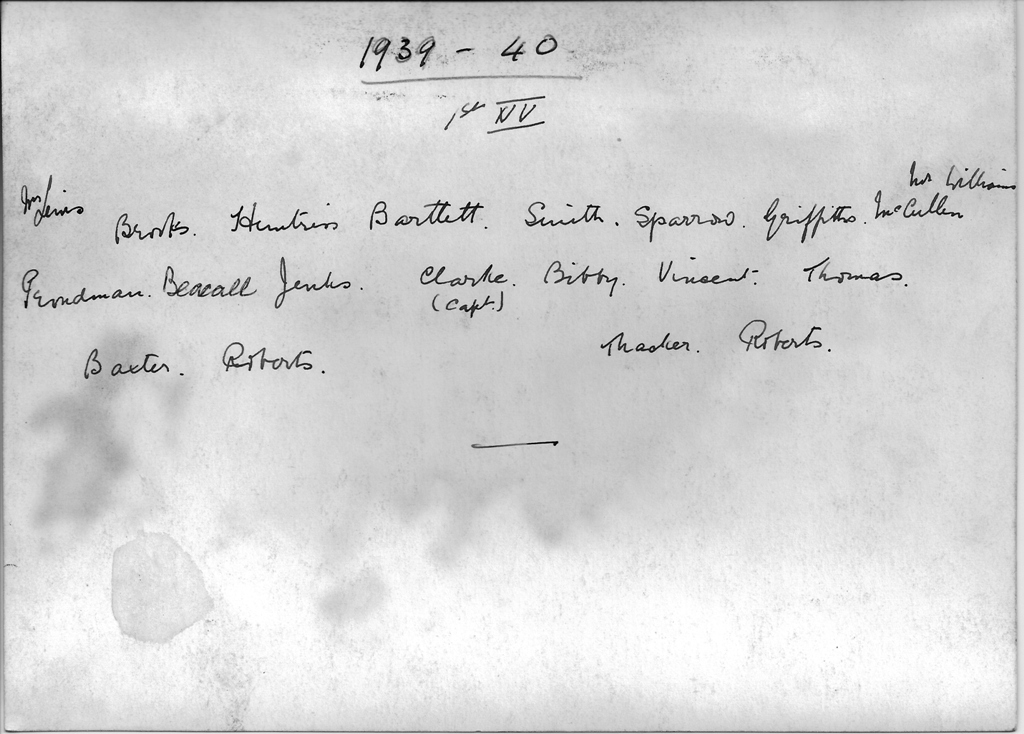 1939 - 40
1st XV
Mr Lewis Brooks. Bartlett. Smith. Sparrow. Griffiths. McCullen Mr Williams
Beacall Jenks. Clarke. Bibby. Vincent. Thomas.
(Capt.)
Baxter. Roberts. Thacker. Roberts.